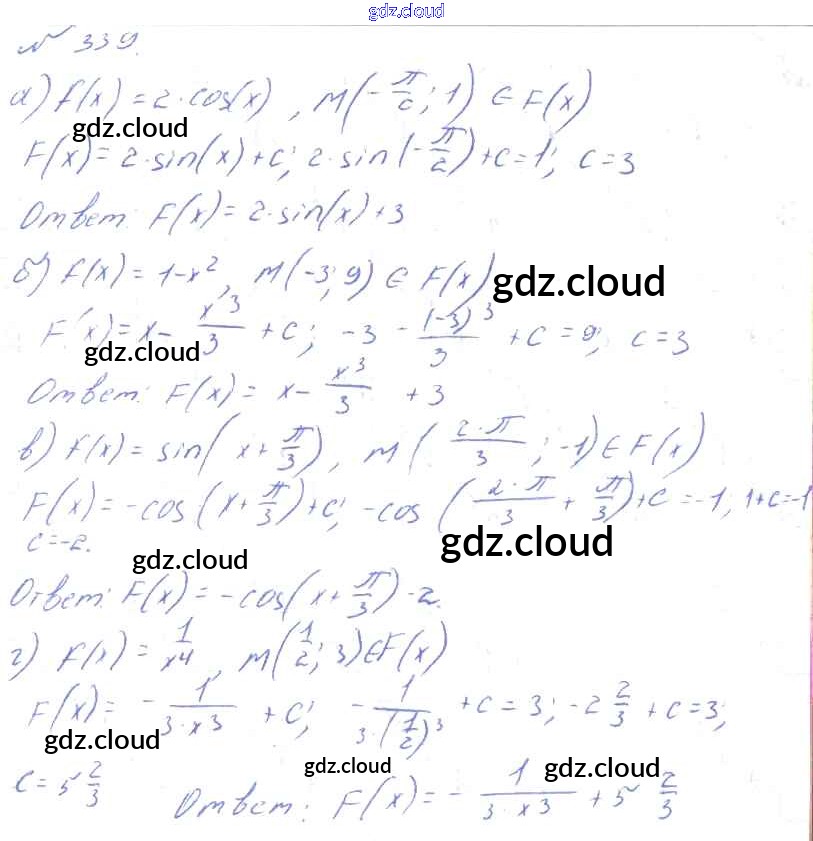 gdz.cloud
№ 339.
а) f(x) = 2·cos(x), M(-π/c; 1) ∈ F(x)
gdz.cloud
F(x) = 2·sin(x) + C; 2·sin(-π/2) + C = 1; C = 3
Ответ: F(x) = 2·sin(x) + 3
б) f(x) = 1-x², M(-3; 9) ∈ F(x) gdz.cloud
F(x) = x - x³/3 + C; -3 - (-3)³/3 + C = 9; C = 3
gdz.cloud
Ответ: F(x) = x - x³/3 + 3
в) f(x) = sin(x + π/3), M(2·π/3; -1) ∈ F(x)
F(x) = -cos(x + π/3) + C; -cos(2·π/3 + π/3) + C = -1, 1+C=-1
C = -2. gdz.cloud
gdz.cloud
Ответ: F(x) = -cos(x + π/3) - 2.
г) f(x) = 1/x⁴, M(1/2; 3) ∈ F(x)
F(x) = -1/(3·x³) + C; -1/(3·(1/2)³) + C = 3; -2 2/3 + C = 3;
gdz.cloud
gdz.cloud gdz.cloud
C = 5 2/3 Ответ: F(x) = -1/(3·x³) + 5 2/3